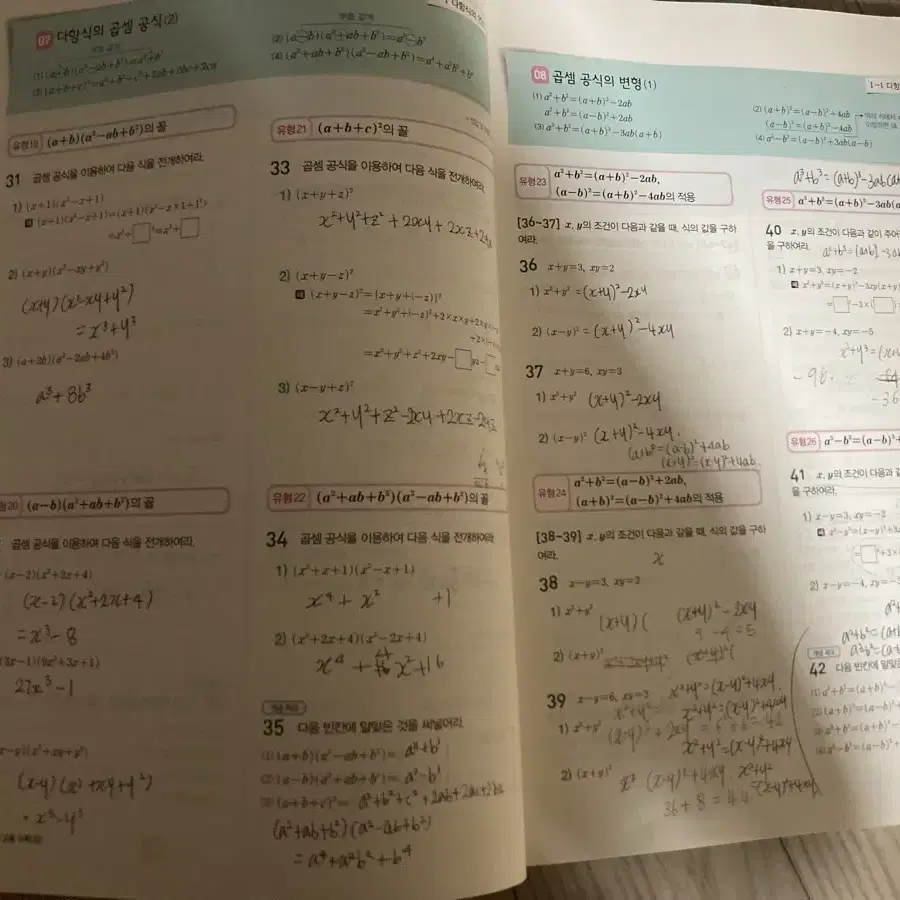 07 다항식의 곱셈 공식(2)
(1) (a+b)(a²-ab+b²)=a³+b³
(2) (a-b)(a²+ab+b²)=a³-b³
(3) (a+b+c)²=a²+b²+c²+2ab+2bc+2ca
(4) (a²+ab+b²)(a²-ab+b²)=a⁴+a²b²+b⁴
유형19 (a+b)(a²-ab+b²)의 꼴
31 곱셈 공식을 이용하여 다음 식을 전개하여라.
1) (x+1)(x²-x+1)
(x+1)(x²-x+1)=(x+1)(x²-x×1+1²)
=x³+□³=x³+□
2) (x+y)(x²-xy+y²)
(x+y)(x²-xy+y²)
=x³+y³
3) (a+2b)(a²-2ab+4b²)
a³+8b³
(a-b)(a²+ab+b²)의 꼴
곱셈 공식을 이용하여 다음 식을 전개하여라.
(x-2)(x²+2x+4)
(x-2)(x²+2x+4)
=x³-8
(3x-1)(9x²+3x+1)
27x³-1
(x-y)(x²+xy+y²)
(x-y)(x²+xy+y²)
=x³-y³
유형21 (a+b+c)²의 꼴
33 곱셈 공식을 이용하여 다음 식을 전개하여라.
1) (x+y+z)²
x²+y²+z²+2xy+2xz+2yz
2) (x+y-z)²
(x+y-z)²={x+y+(-z)}²
=x²+y²+(-z)²+2×x×y+2×y×(-z)
=x²+y²+z²+2xy-□yz-□
3) (x-y+z)²
x²+y²+z²-2xy+2xz-2yz
유형22 (a²+ab+b²)(a²-ab+b²)의 꼴
34 곱셈 공식을 이용하여 다음 식을 전개하여라.
1) (x²+x+1)(x²-x+1)
x⁴+x² +1
2) (x²+2x+4)(x²-2x+4)
x⁴+ x²+16
35 다음 빈칸에 알맞은 것을 써넣어라.
(1) (a+b)(a²-ab+b²)= a³+b³
(2) (a-b)(a²+ab+b²)= a³-b³
(3) (a+b+c)²= a²+b²+c²+2ab+2ac+2bc
(a²+ab+b²)(a²-ab+b²)
=a⁴+a²b²+b⁴
08 곱셈 공식의 변형(1)
(1) a²+b²=(a+b)²-2ab
a²+b²=(a-b)²+2ab
(2) (a+b)²=(a-b)²+4ab
(a-b)²=(a+b)²-4ab
(3) a³+b³=(a+b)³-3ab(a+b)
(4) a³-b³=(a-b)³+3ab(a-b)
유형23 a²+b²=(a+b)²-2ab,
(a-b)²=(a+b)²-4ab의 적용
[36-37] x, y의 조건이 다음과 같을 때, 식의 값을 구하
여라.
36 x+y=3, xy=2
1) x²+y² =(x+y)²-2xy
2) (x-y)² =(x+y)²-4xy
37 x+y=6, xy=3
1) x²+y² (x+y)²-2xy
2) (x-y)² (x+y)²-4xy.
(a+b)²=(a-b)²+4ab
(x+y)²=(x-y)²+4ab.
유형24 a²+b²=(a-b)²+2ab,
(a+b)²=(a-b)²+4ab의 적용
[38-39] x, y의 조건이 다음과 같을 때, 식의 값을 구하
여라.
x
38 x-y=3, xy=2
1) x²+y² (x+y)( (x+y)²-2xy
9-4=5
2) (x+y)²
39 x-y=6, xy=3
x²+y²=(x-y)²+4xy.
1) x²+y² (x-y)²+2xy
x²+y²=(x-y)²+4xy
2) (x+y)² (x-y)²+4xy. x²+y²
36+8=44
a³+b³=(a+b)³-3ab
유형25 a³+b³=(a+b)³-3ab
40 x, y의 조건이 다음과 같이
을 구하여라.
1) x+y=3, xy=-2
x³+y³=(x+y)³-3xy(x+y)
2) x+y=-4, xy=-5
x³+y³=
유형26 a³-b³=(a-b)³+
41 x, y의 조건이 다음과
을 구하여라.
1) x-y=3, xy=-2
x³-y³=(x-y)³+3x
2) x-y=-4, xy=
42 다음 빈칸에 알맞은
(1) a²+b²=(a+b)²-
(2) (a+b)²=(a-b)²+